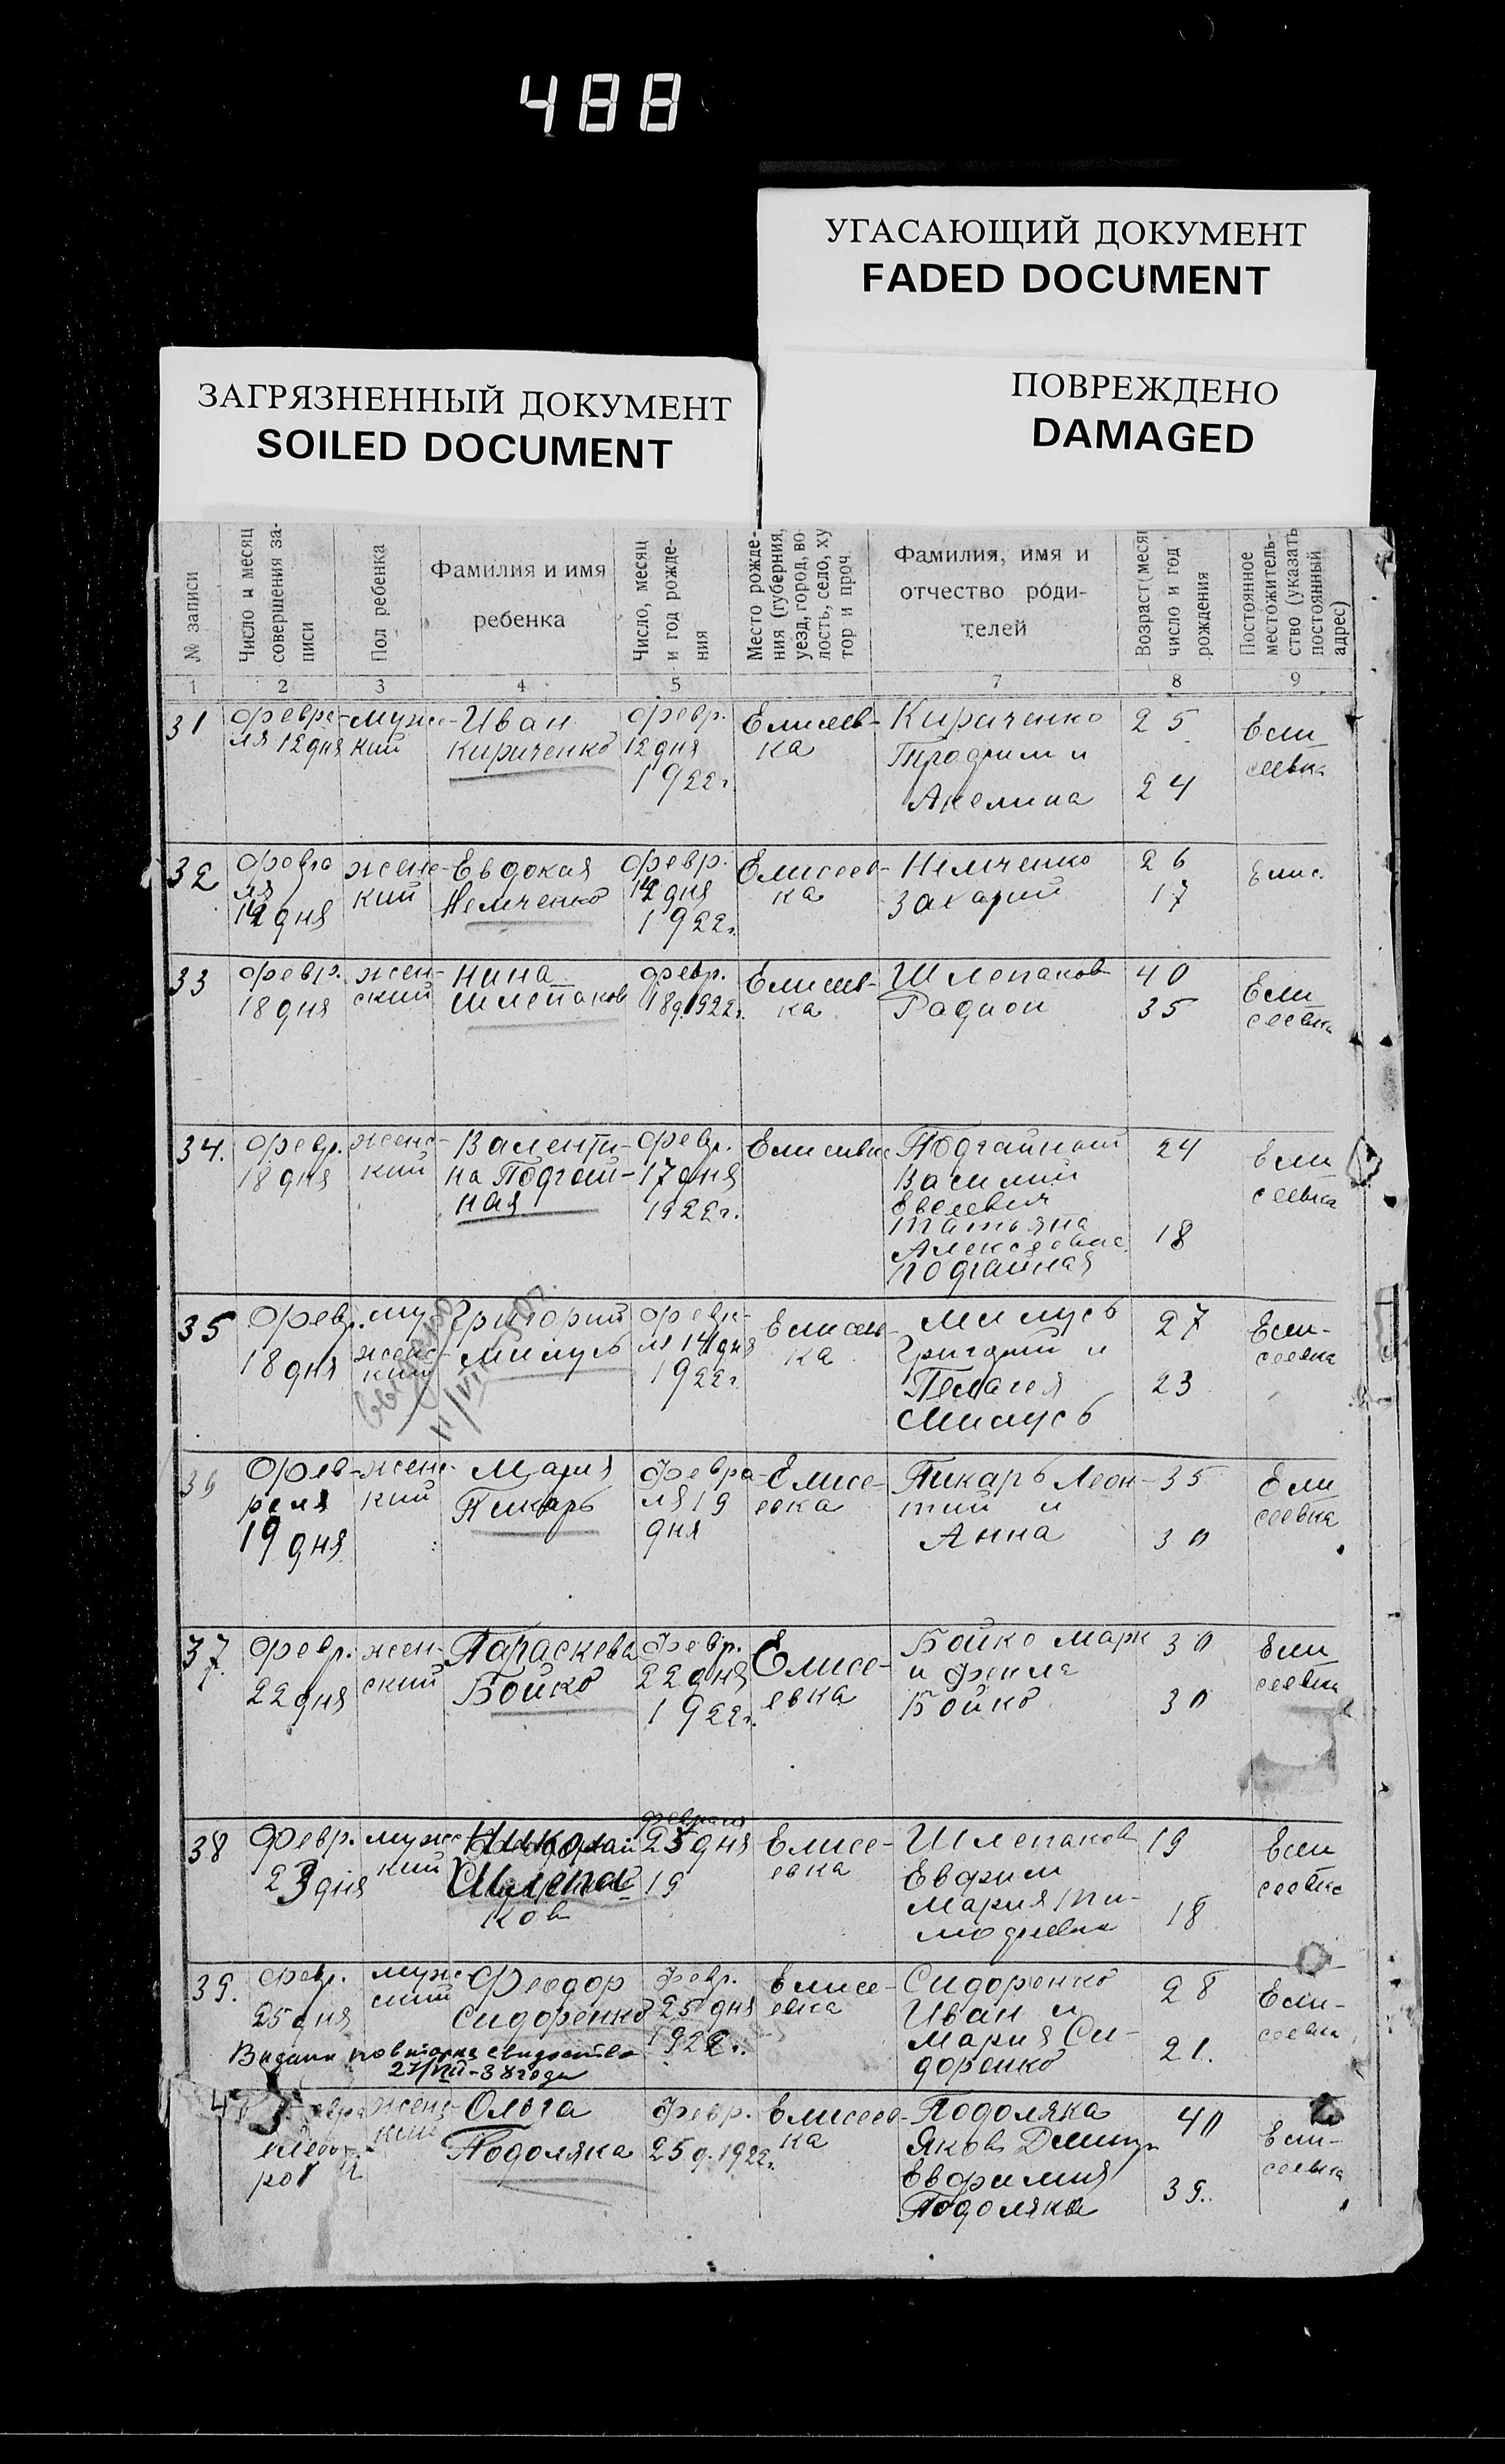 488
УГАСАЮЩИЙ ДОКУМЕНТ
FADED DOCUMENT
ЗАГРЯЗНЕННЫЙ ДОКУМЕНТ
SOILED DOCUMENT
ПОВРЕЖДЕНО
DAMAGED
№ записи
Число и месяц
совершения за-
писи
Пол ребенка
Фамилия и имя
ребенка
Число, месяц
и год рожде-
ния
Место рожде-
ния (губерния,
уезд, город, во
лость, село, ху
тор и проч
Фамилия, имя и
отчество роди-
телей
Возраст (меся
число и год
рождения
Постоянное
местожитель-
ство (указать
постоянный
адрес)
1 2 3 4 5 7 8 9
31
Февра-
ля 12 дня
муж-
кий
Иван
Кириченко
Февр.
12 дня
1922г
Елисеев-
ка
Кириченко
Трофим и
Акелина
25
24
Ели
сеевка
32
Февра
ля
12 дня
женс-
кий
Евдокия
Немченко
Февр.
12 дня
1922г.
Елисеев-
ка
Немченко
Захарий
26
17
Елис.
33
Февр.
18 дня
жен-
ский
Нина
Шлепаков
Февр.
18д.1922г.
Елисев-
ка
Шлепаков
Радион
40
35
Ели
сеевка
34.
Февр.
18 дня
женс-
кий
Валенти-
на Подгай-
ная
Февр.
17 дня
1922г.
Елисивка
Подгайный
Василий
Татьяна
Алексеевна
Подгайная
24
18
Ели
сеевка
35
Февр.
18 дня
му
женс-
кий
Григорий
Милусь
Февр-
ля 14 дня
1922г
Елисев-
ка
Милусь
Григорий и
Пелагея
Милусь
27
23
Ели-
сеевка
36
Фев-
реля
19 дня
женс-
кий
Мария
Пикарь
Февра-
ля 19
дня
Елисе-
евка
Пикарь Леон-
тий и
Анна
35
30
Ели
сеевка
37.
Февр.
22 дня
жен-
ский
Параскева
Бойко
Февр.
22 дня
1922г.
Елисе-
евка
Бойко Марк
и Фекла
Бойко
30
30
Ели
сеевка
38
Февр.
23 дня
муж
кий
Николай
Шлепа-
ков
Февраля
25 дня
19
Елисе-
евка
Шлепаков
Евфим
Мария Ти-
мофеевна
19
18
Ели
сеевка
39.
Февр.
25 дня
муж
ский
Феодор
Сидоренко
Февр.
25 дня
1922г.
Елисе-
евка
Сидоренко
Иван и
Мария Си-
доренко
28
21.
Ели-
сеевка
27/VIII-38 года
женс-
кий
Ольга
Подоляка
Февр.
25 д. 1922г.
Елисеев-
ка
Подоляка
Яков
Евфимия
Подоляка
40
39.
Ели-
сеевка